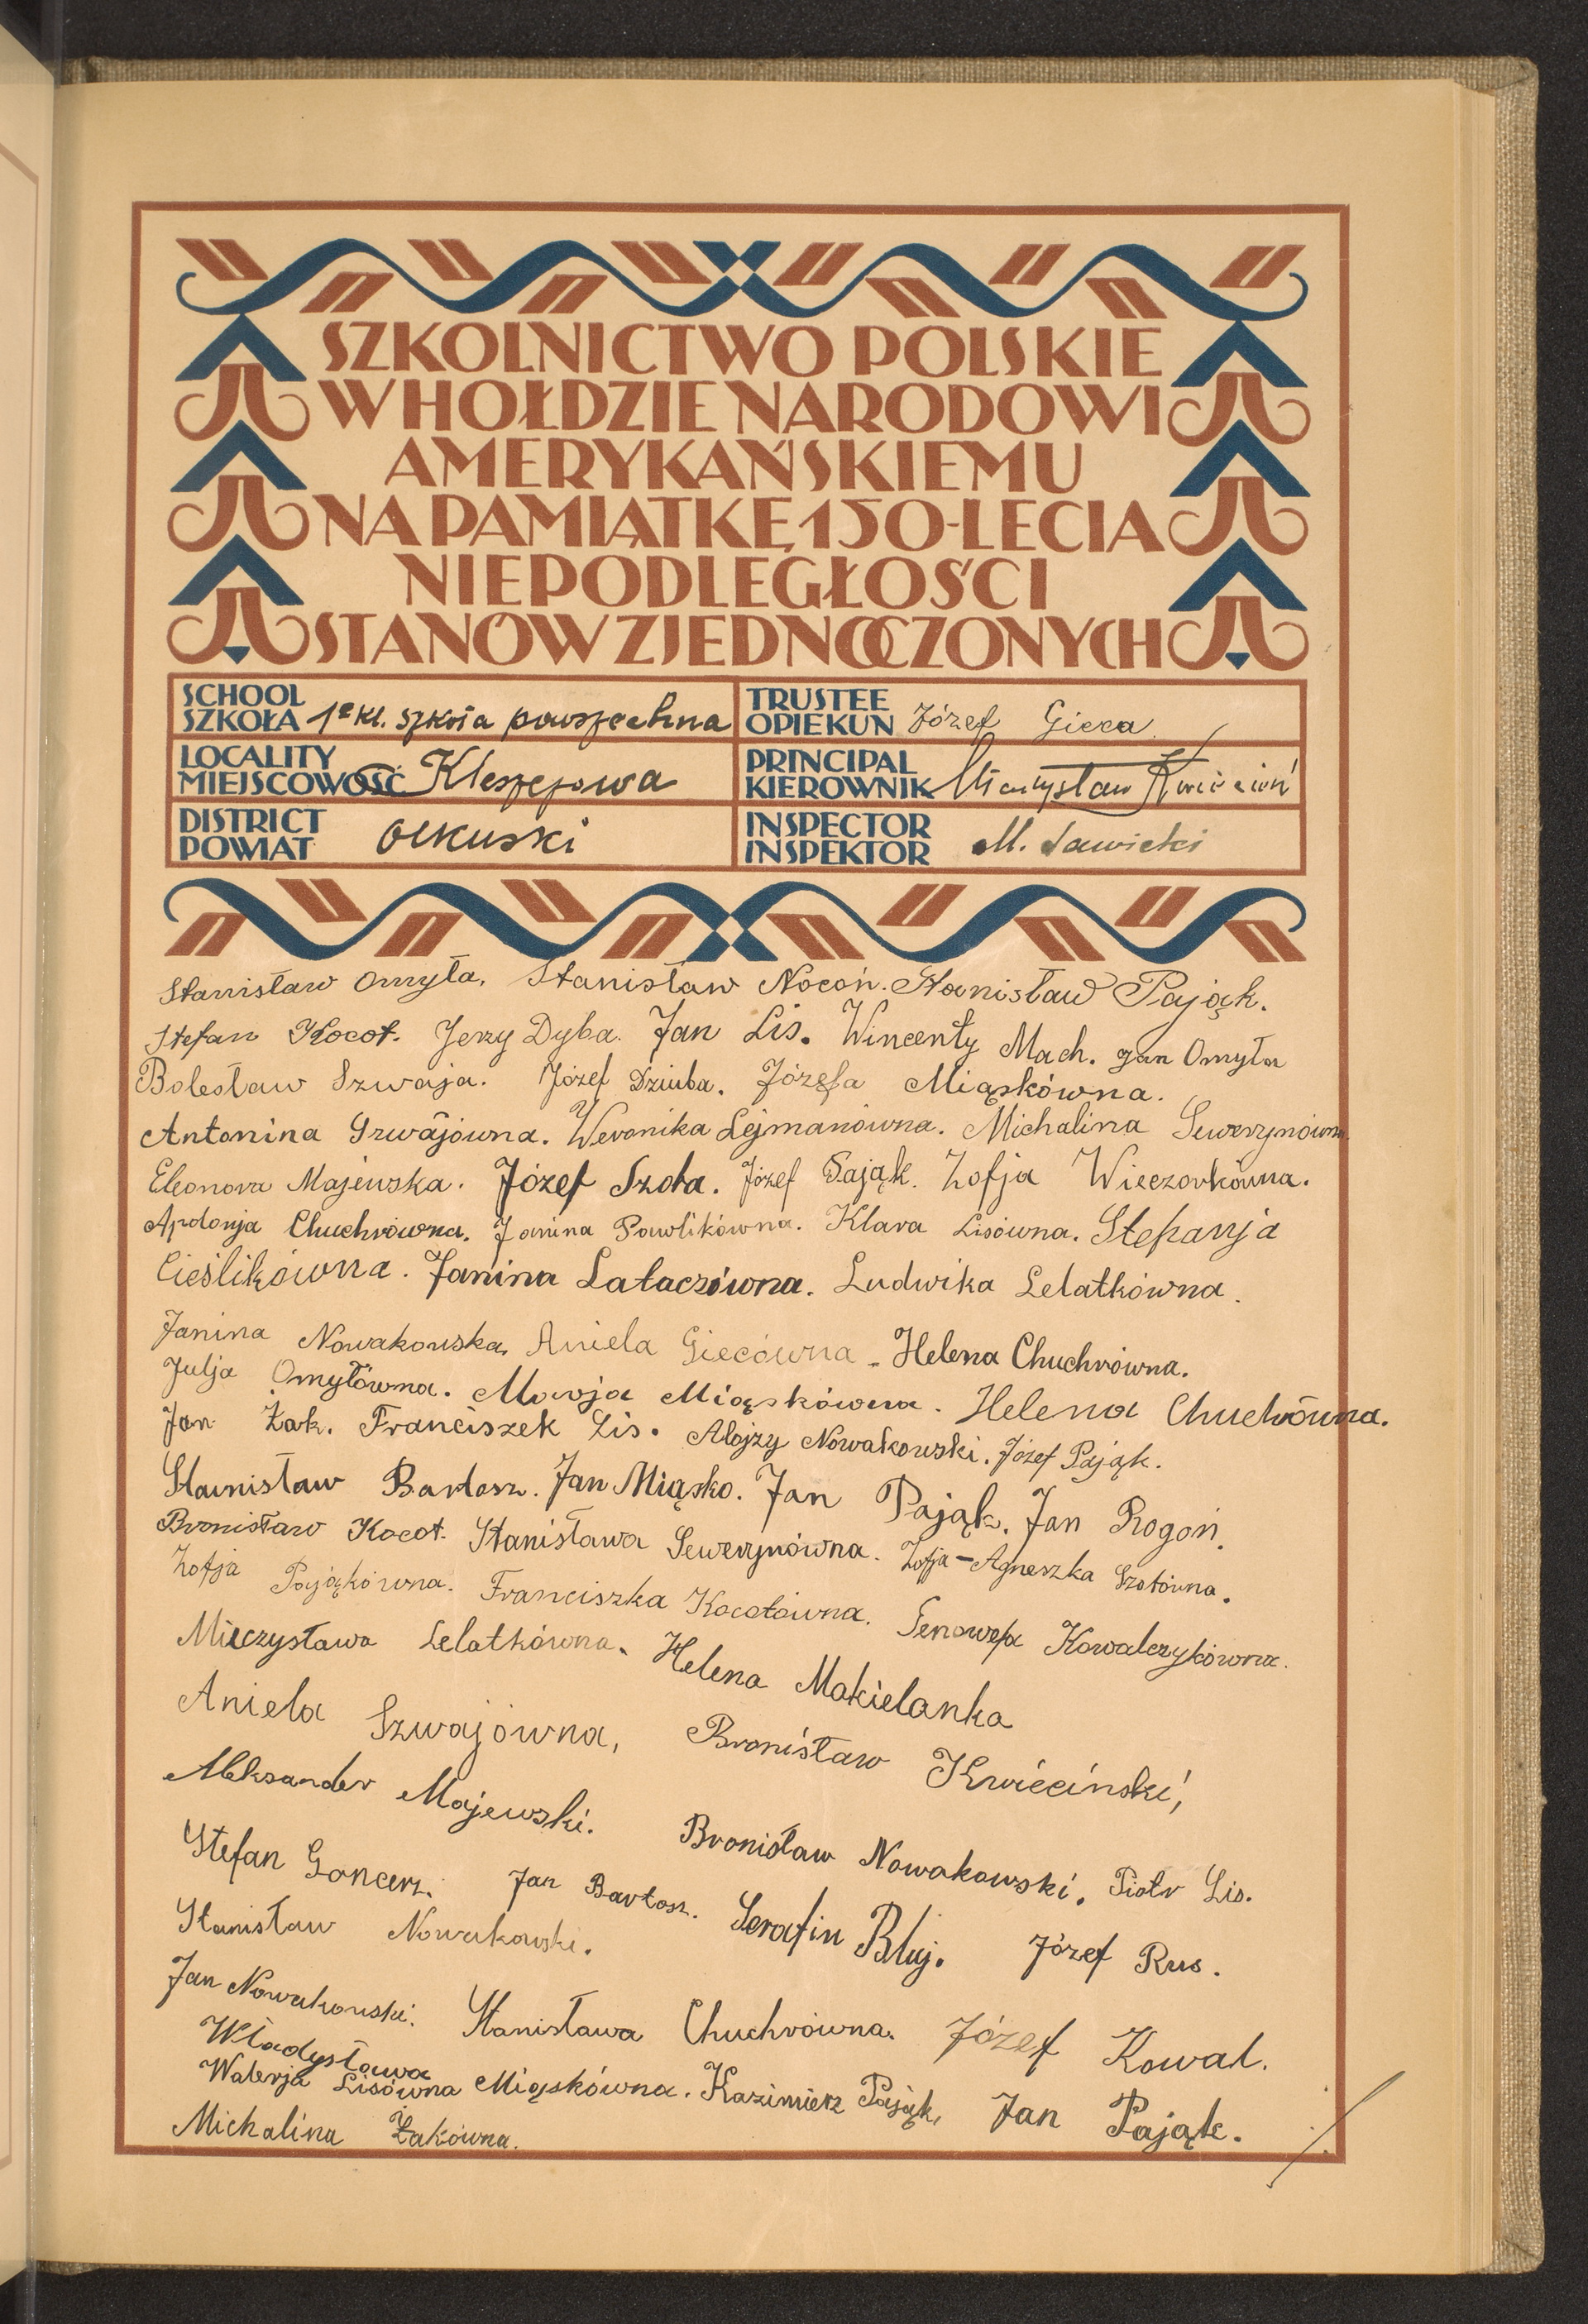 SZKOLNICTWO POLSKIE
W HOŁDZIE NARODOWI
AMERYKAŃSKIEMU
NA PAMIĄTKĘ 150-LECIA
NIEPODLEGŁOŚCI
STANÓW ZJEDNOCZONYCH
SCHOOL
SZKOŁA 1º kl. szkoła powszechna
TRUSTEE
OPIEKUN Józef Gieca
LOCALITY
MIEJSCOWOŚĆ Kleszczowa
PRINCIPAL
KIEROWNIK
DISTRICT
POWIAT olkuski
INSPECTOR
INSPEKTOR M. Sawicki
Stanisław Omyła, Stanisław Nocoń. Stanisław Pająk.
Stefan Kocot. Jerzy Dyba. Jan Lis. Wincenty Mach. Jan Omyła
Bolesław Szwaja. Józef Dziuba. Józefa Miąskówna.
Antonina Szwajówna. Weronika Lejmanówna. Michalina Sewerynówna
Eleonora Majewska. Józef Szota. Józef Pająk. Zofja Wieczorkówna.
Apolonja Chuchrówna. Janina Pawlikówna. Klara Lisówna. Stefanja
Cieślikówna. Janina Łataczówna. Ludwika Lelatkówna.
Janina Nowakowska, Aniela Giecówna. Helena Chuchrówna.
Julja Omyłówna. Marja Miąskówna. Helena Chuchrówna.
Jan Żak. Franciszek Lis. Alojzy Nowakowski. Józef Pająk.
Stanisław Bartosz. Jan Miąsko. Jan Pająk. Jan Rogoń.
Bronisław Kocot. Stanisława Sewerynówna. Zofja-Agneszka Szotówna.
Zofja Pająkówna. Franciszka Kocotówna. Genowefa Kowalczykówna.
Mieczysława Lelatkówna. Helena Makielanka
Aniela Szwajówna, Bronisław Kwieciński,
Aleksander Majewski. Bronisław Nowakowski. Piotr Lis.
Stefan Goncerz. Jan Bartosz. Serafin Bluj. Józef Rus.
Stanisław Nowakowski.
Jan Nowakowski. Stanisława Chuchrówna. Józef Kowal.
Władysława
Walerja Lisówna Miąskówna. Kazimierz Pająk, Jan Pająk.
Michalina Żakówna.